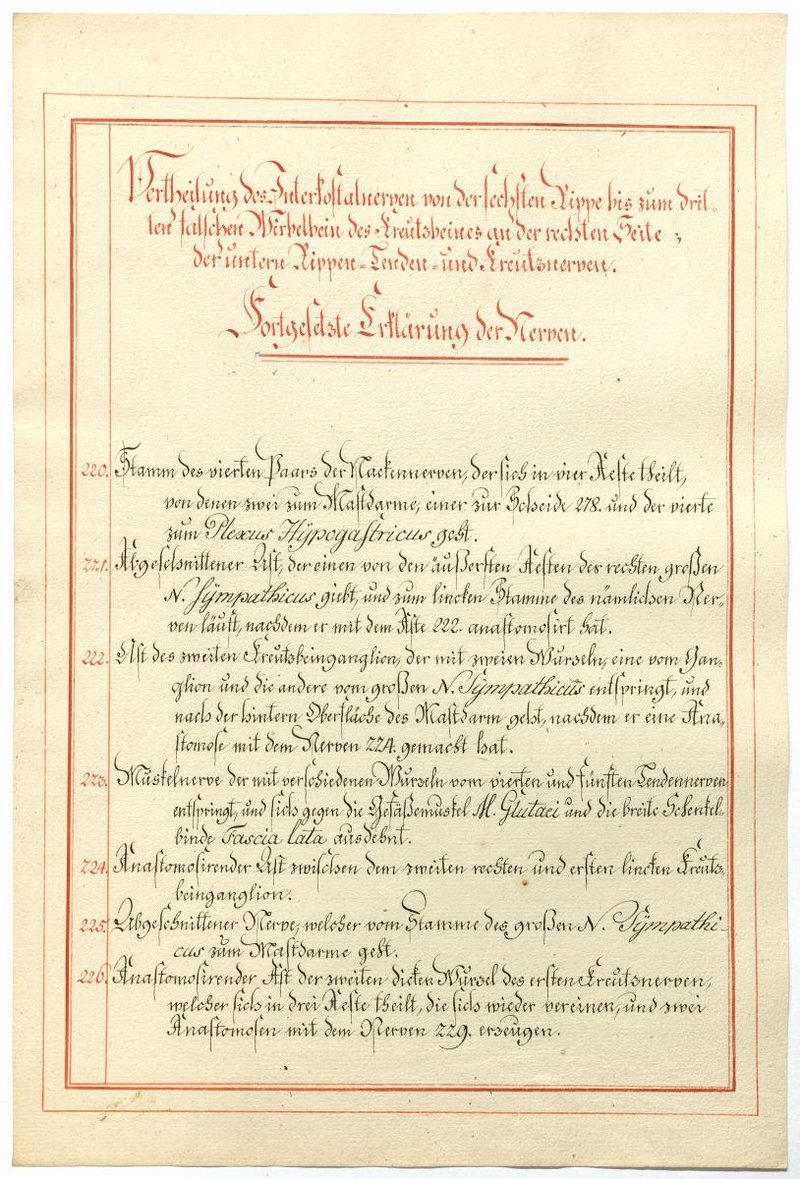 Vertheilung des Interkostalnerven von der sechsten Rippe bis zum drit-
ten falschen Wirbelbein des Kreutzbeines an der rechten Seite;
der untern Rippen- Lenden- und Kreutznerven.
Fortgesetzte Erklärung der Nerven.
220. Stamm des vierten Paars der Nackennerven, der sich in vier Aeste theilt,
von denen zwei zum Mastdarme, einer zur Scheide 218. und der vierte
zum Plexus Hÿpogastricus geht.
221. Abgeschnittener Ast, der einen von den äußersten Aesten des rechten großen
N. Sÿmpathicus giebt, und zum lincken Stamme des nämlichen Ner-
ven läuft, nachdem er mit dem Aste 222. anastomosirt hat.
222. Ast des zweiten Kreutzbeinganglion, der mit zweien Wurzeln, eine vom Gan-
glion und die andere vom großen N. Sÿmpathicus entspringt, und
nach der hintern Oberfläche des Mastdarm geht, nachdem er eine Ana-
stomose mit dem Nerven 224. gemacht hat.
223. Muskelnerve der mit verschiedenen Wurzeln vom vierten und fünften Lendennerven
entspringt, und sich gegen die Gesäßemuskel M. Glutaei und die breite Schenkel-
binde Fascia lata ausdehnt.
224. Anastomosirender Ast zwischen dem zweiten rechten und ersten lincken Kreutz-
beinganglion.
225. Abgeschnittener Nerve, welcher vom Stamme des großen N. Sÿmpathi-
cus zum Mastdarme geht.
226. Anastomosirender Ast der zweiten dicken Wurzel des ersten Kreutznerven,
welcher sich in drei Aeste theilt, die sich wieder vereinen, und zwei
Anastomosen mit dem Nerven 229. erzeugen.